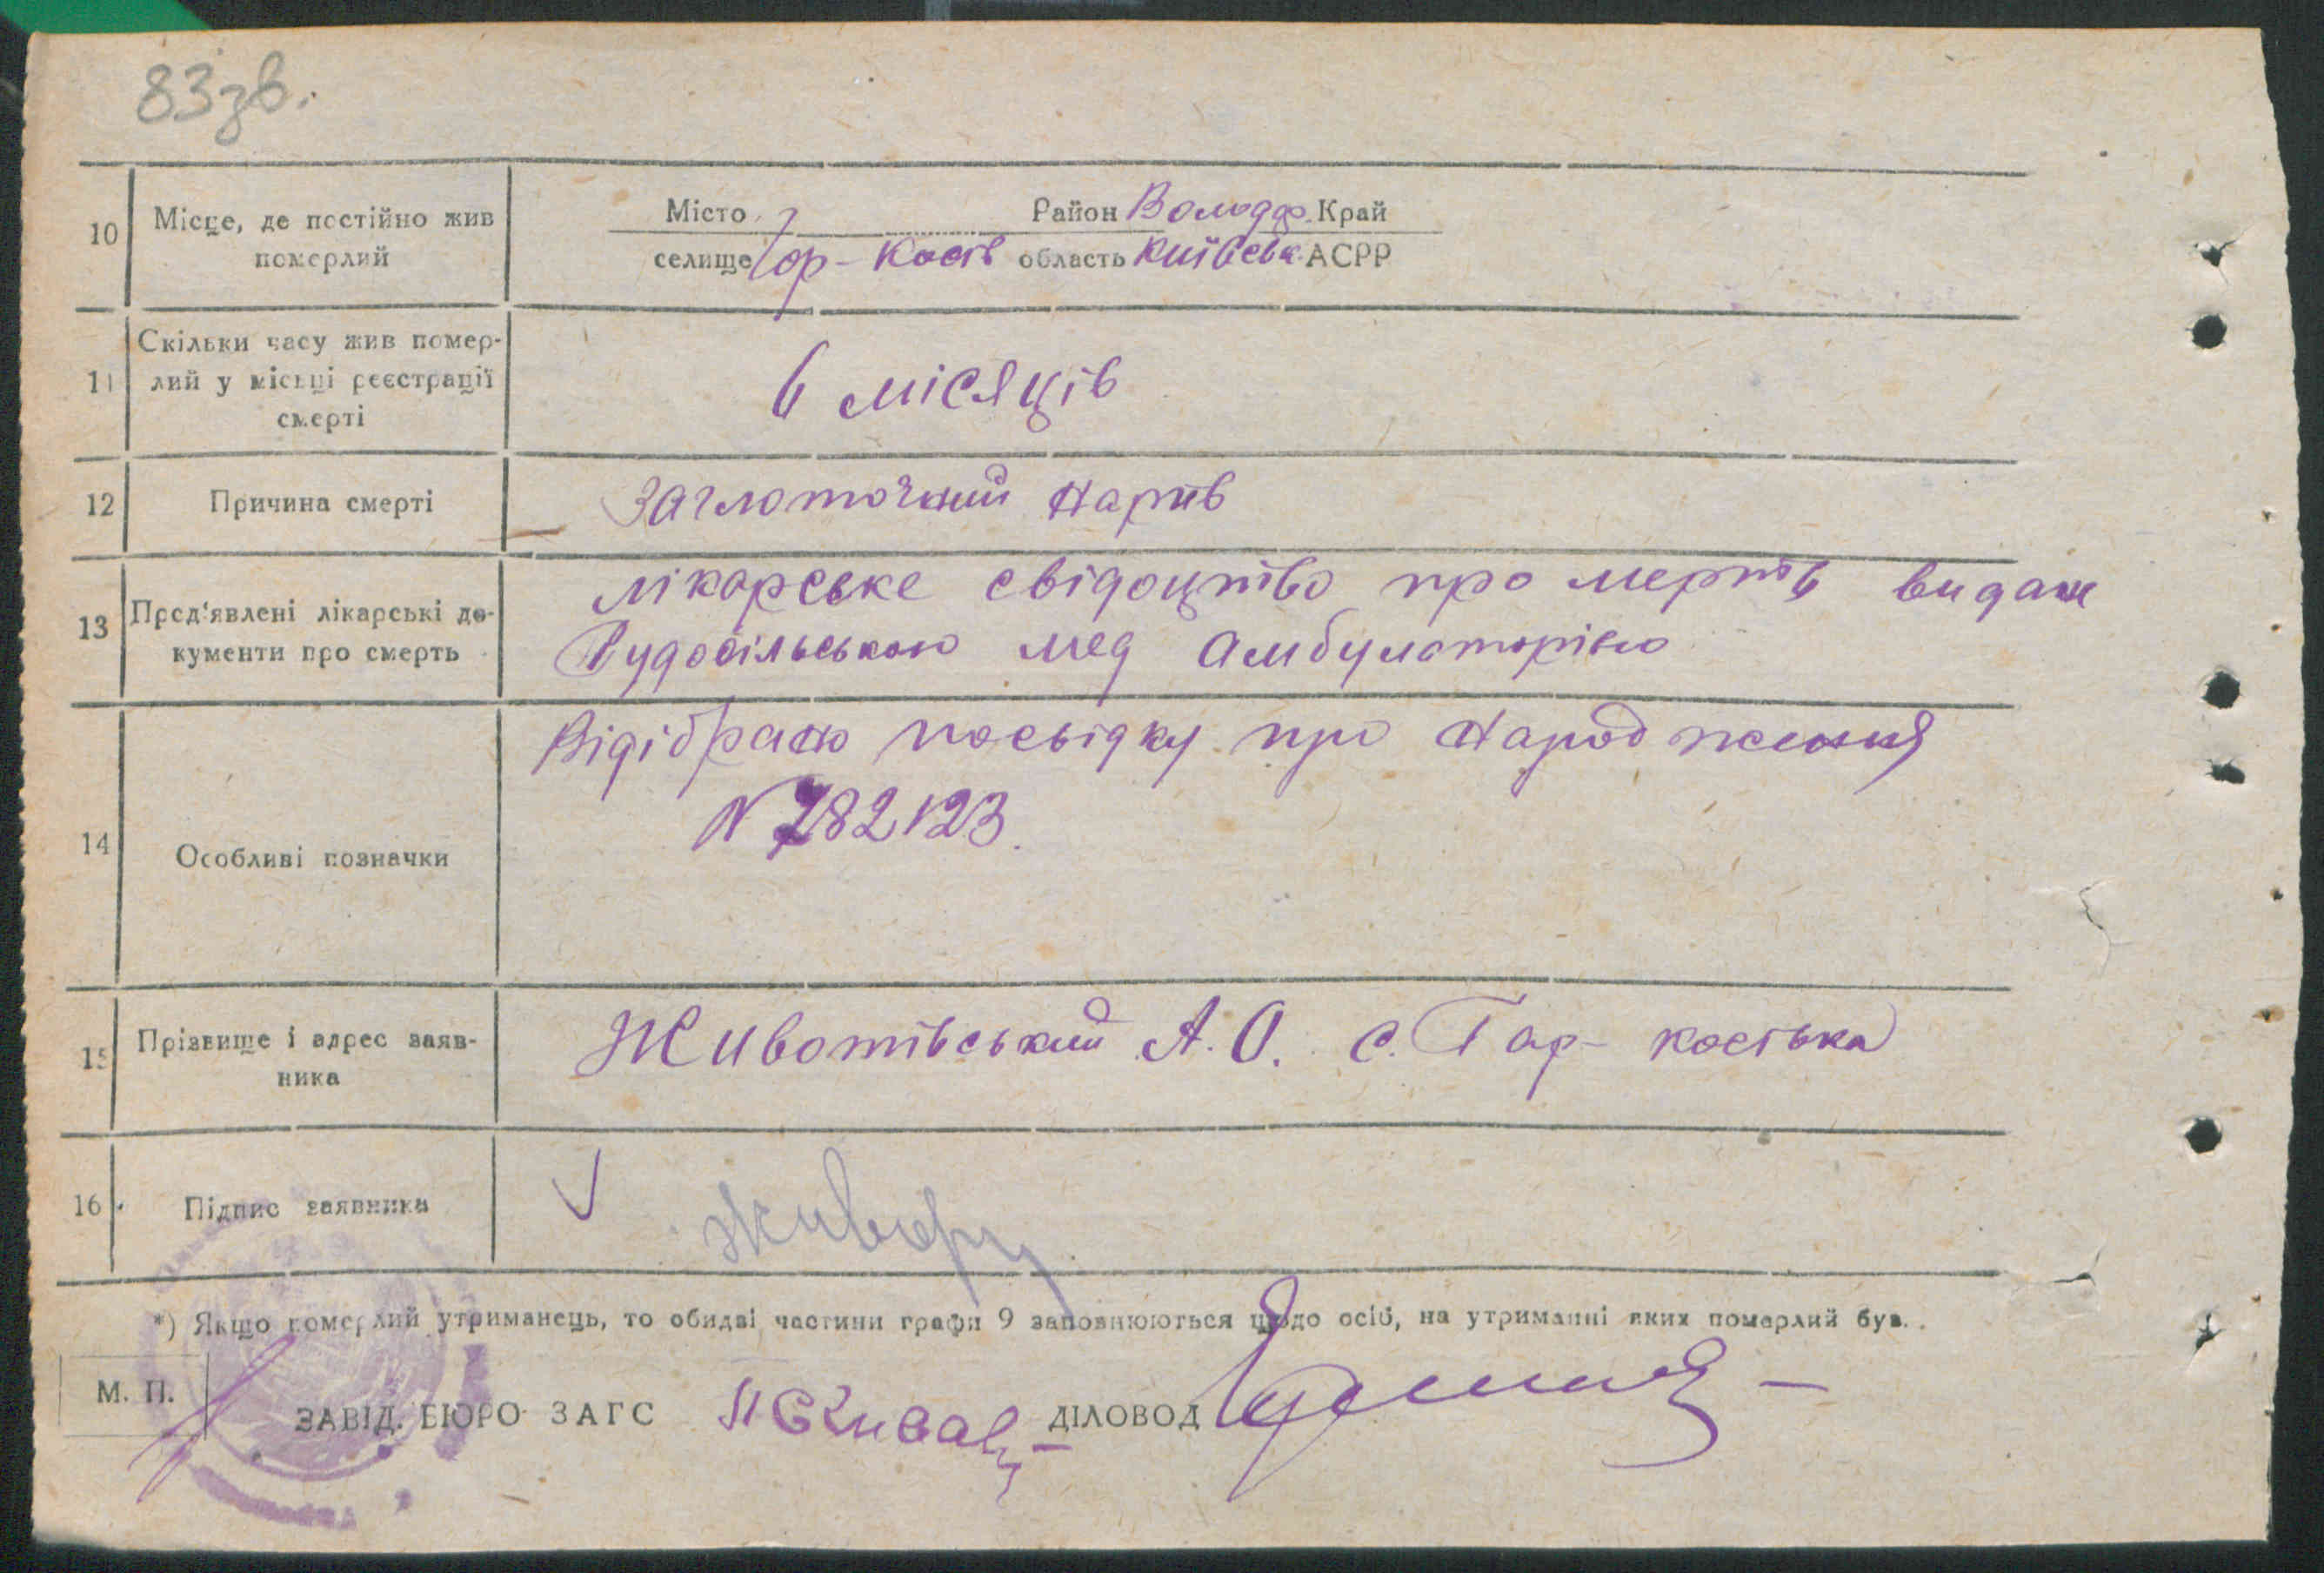 83зв.
10 Місце, де постійно жив померлий
Місто Район Володар. Край
селище Гор-Кость область Київськ АСРР
11 Скільки часу жив помер-
лий у місці реєстрації
смерті
6 місяців
12 Причина смерті
Заглоточний Нарив
13 Пред'явлені лікарські до-
кументи про смерть
лікарське свідоцтво про мерть видане
Рудосільською мед Амбулаторією
14 Особливі позначки
Відібрано посвідку про Народження
N 282123.
15 Прізвище і адрес заяв-
ника
Животівський А. О. с. Гор- костька
16 Підпис заявника
*) Якщо померлий утриманець, то обидві частини графи 9 заповнюються щодо осіб, на утриманні яких померлий був.
М. П.
ЗАВІД. БЮРО ЗАГС ДІЛОВОД